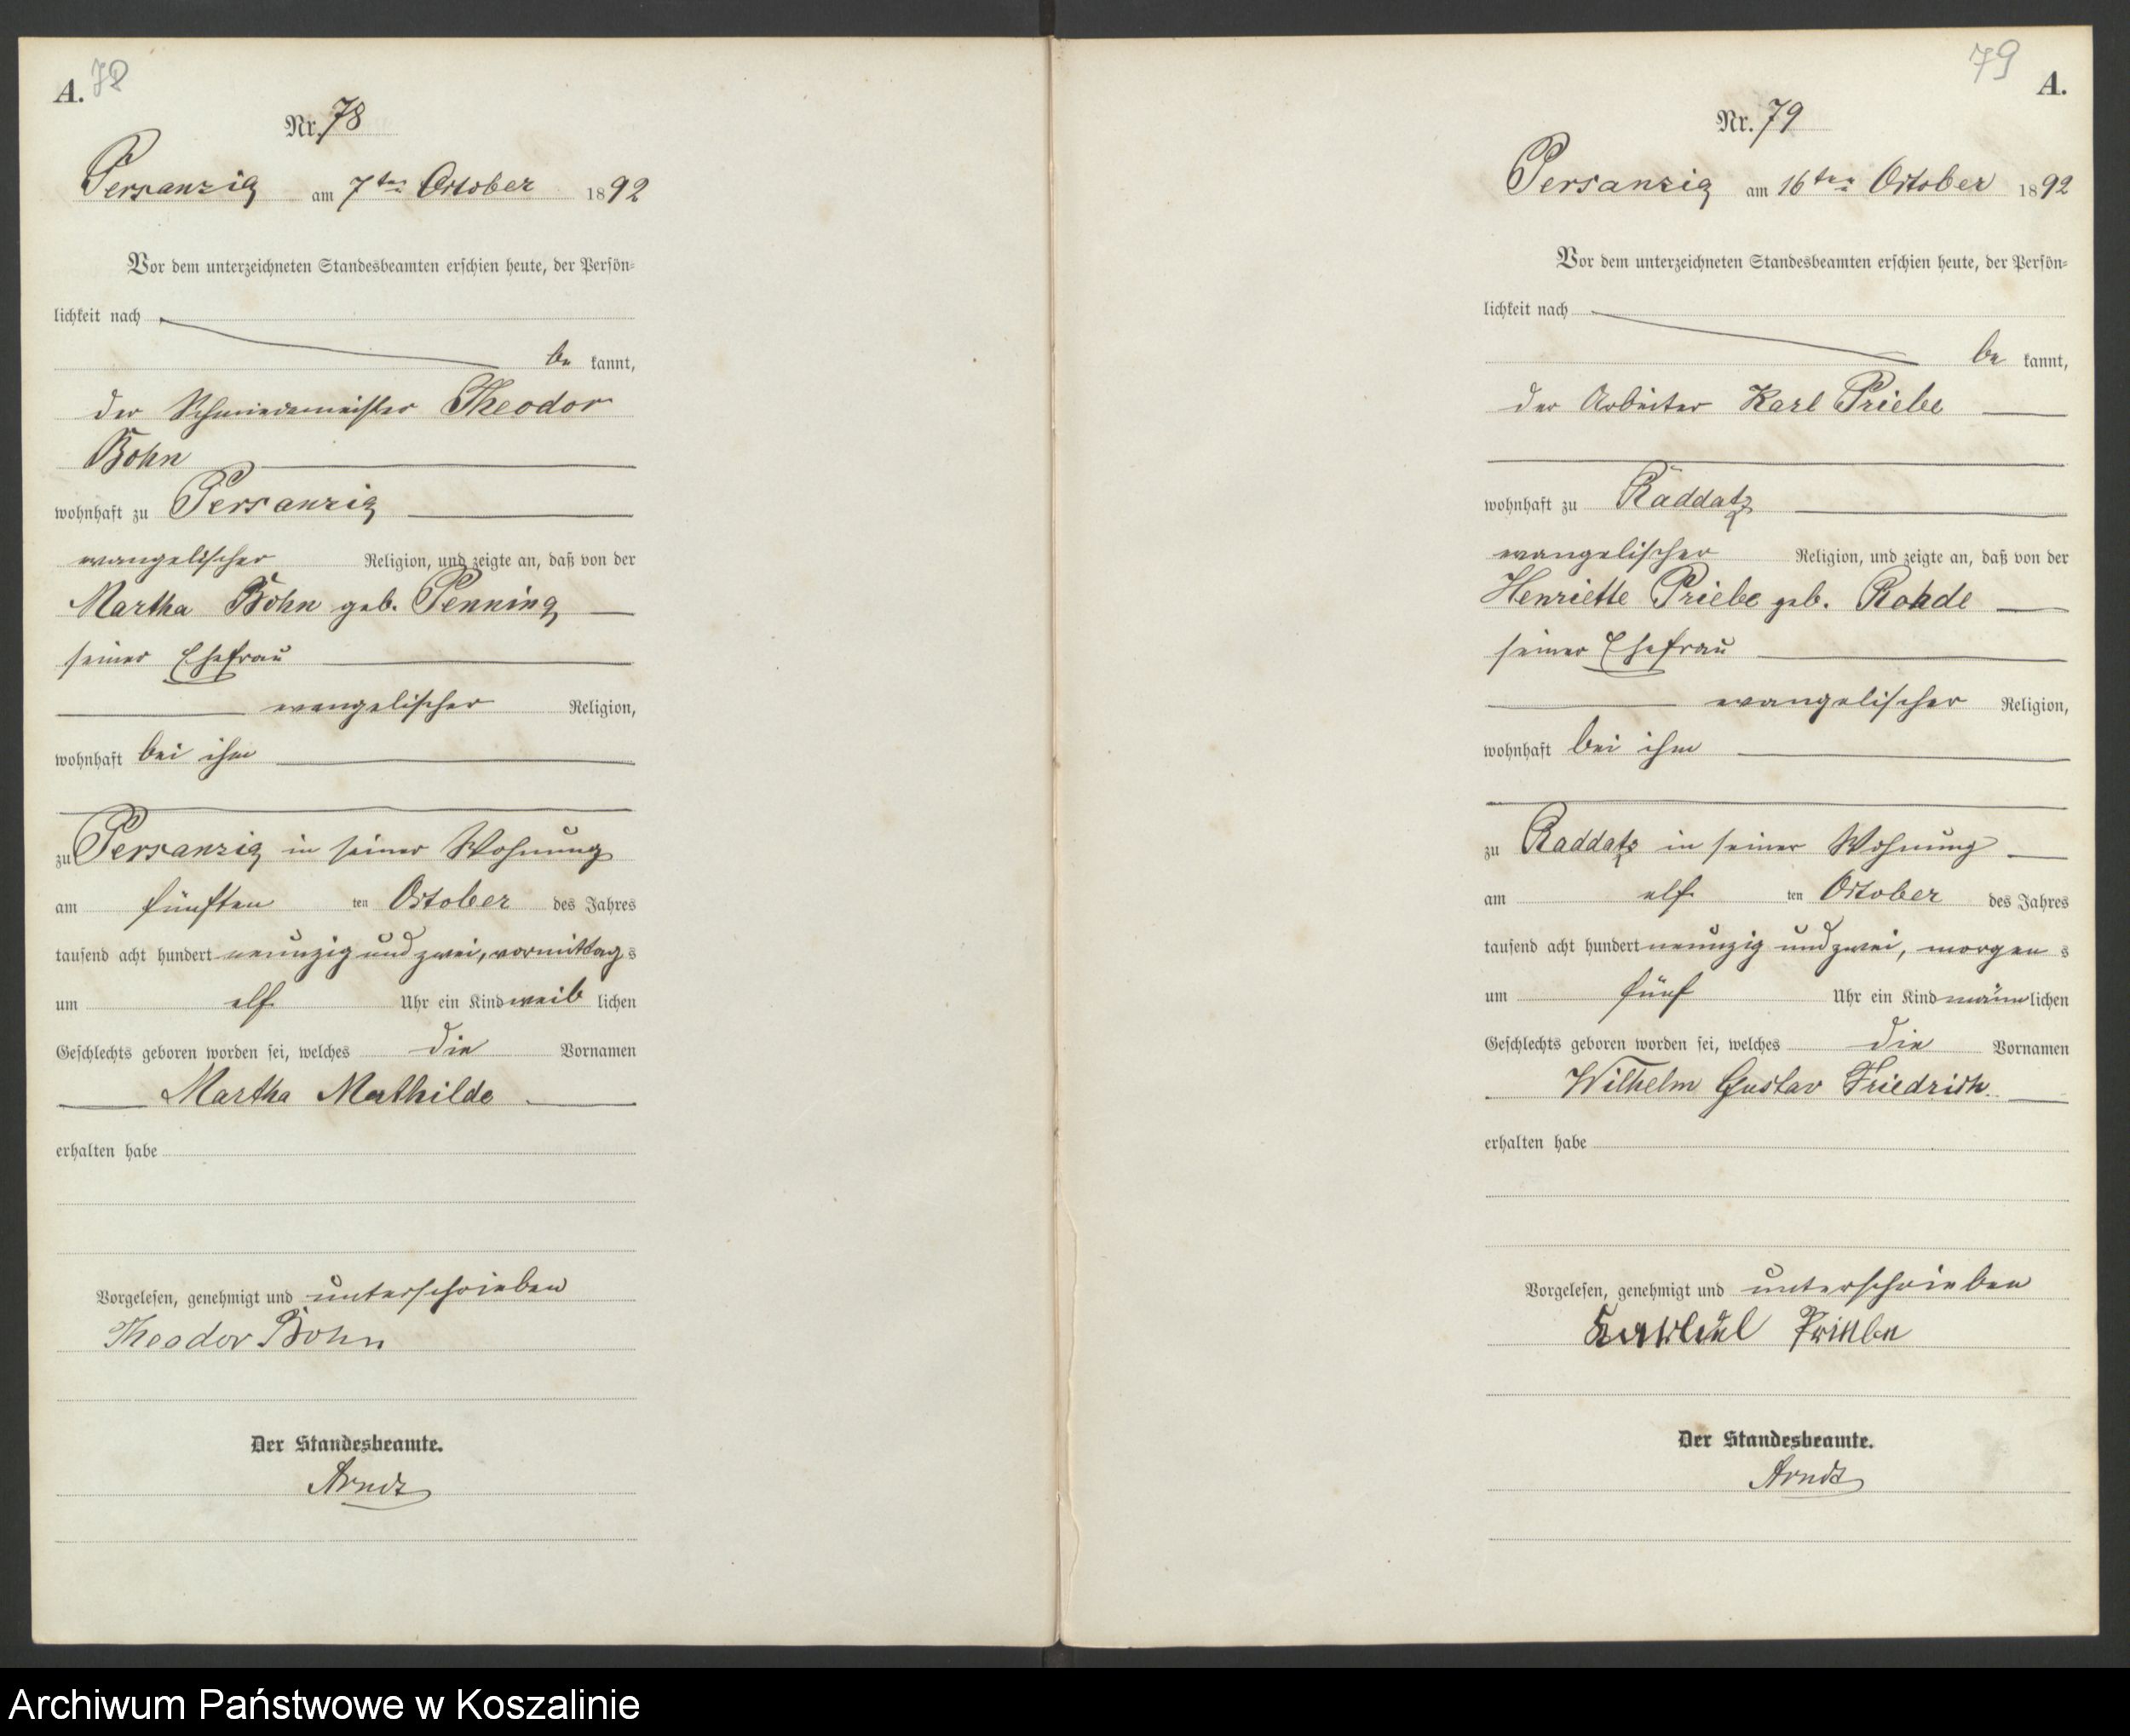 A. 78
Nr. 78
Persanzig am 7ten October 1892
Vor dem unterzeichneten Standesbeamten erschien heute, der Persön-
lichkeit nach
be kannt,
der Schmiedemeister Theodor
Bohn
wohnhaft zu Persanzig
evangelischer Religion, und zeigte an, daß von der
Martha Bohn geb. Penning
seiner Ehefrau
evangelischer Religion,
wohnhaft bei ihm
zu Persanzig in seiner Wohnung
am fünften ten October des Jahres
tausend acht hundert neunzig und zwei, vormittag s
um elf Uhr ein Kind weib lichen
Geschlechts geboren worden sei, welches die Vornamen
Martha Mathilde
erhalten habe
Vorgelesen, genehmigt und unterschrieben
Theodor Bohn
Der Standesbeamte.
Arndt
79 A.
Nr. 79
Persanzig am 16ten October 1892
Vor dem unterzeichneten Standesbeamten erschien heute, der Persön-
lichkeit nach
be kannt,
der Arbeiter Karl Priebe
wohnhaft zu Raddatz
evangelischer Religion, und zeigte an, daß von der
Henriette Priebe geb. Rohde
seiner Ehefrau
evangelischer Religion,
wohnhaft bei ihm
zu Raddatz in seiner Wohnung
am elf ten October des Jahres
tausend acht hundert neunzig und zwei, morgen s
um fünf Uhr ein Kind männ lichen
Geschlechts geboren worden sei, welches die Vornamen
Wilhelm Gustav Friedrich
erhalten habe
Vorgelesen, genehmigt und unterschrieben
Priebe
Der Standesbeamte.
Arndt
Archiwum Państwowe w Koszalinie